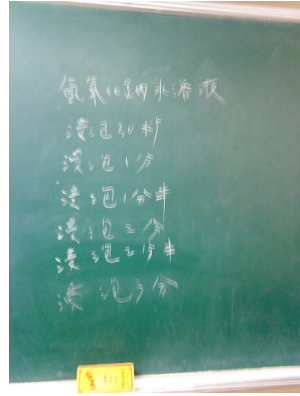 氫氧化鈉水溶液
浸泡30秒
浸泡1分
浸泡1分半
浸泡2分
浸泡2分半
浸泡3分